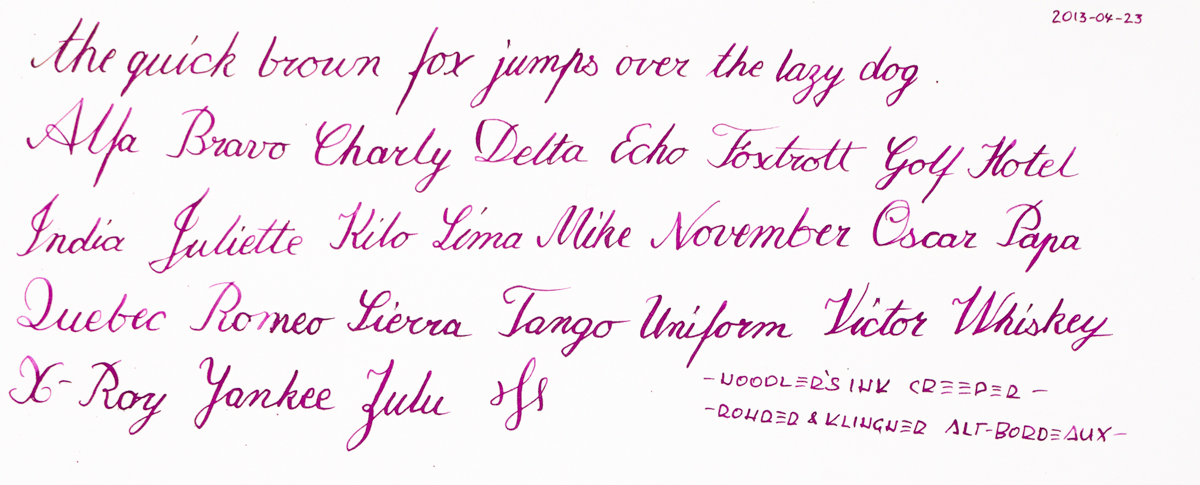 2013-04-23
the quick brown fox jumps over the lazy dog.
Alfa Bravo Charly Delta Echo Foxtrott Golf Hotel
India Juliette Kilo Lima Mike November Oscar Papa
Quebec Romeo Sierra Tango Uniform Victor Whiskey
X-Ray Yankee Zulu
- NOODLER'S INK CREEPER -
- ROHRER & KLINGNER ALT-BORDEAUX -